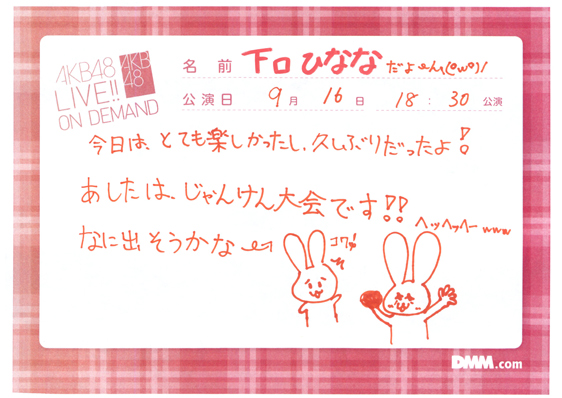 AKB48
LIVE!!
ON DEMAND
AKB
48
名 前 下口ひなな だよ
公演日 9月 16日 18:30 公演
今日は、とても楽しかったし、久しぶりだったよ!
あしたは、じゃんけん大会です!!
ヘッヘッヘー www
なに出そうかな
コワッ!
DMM.com